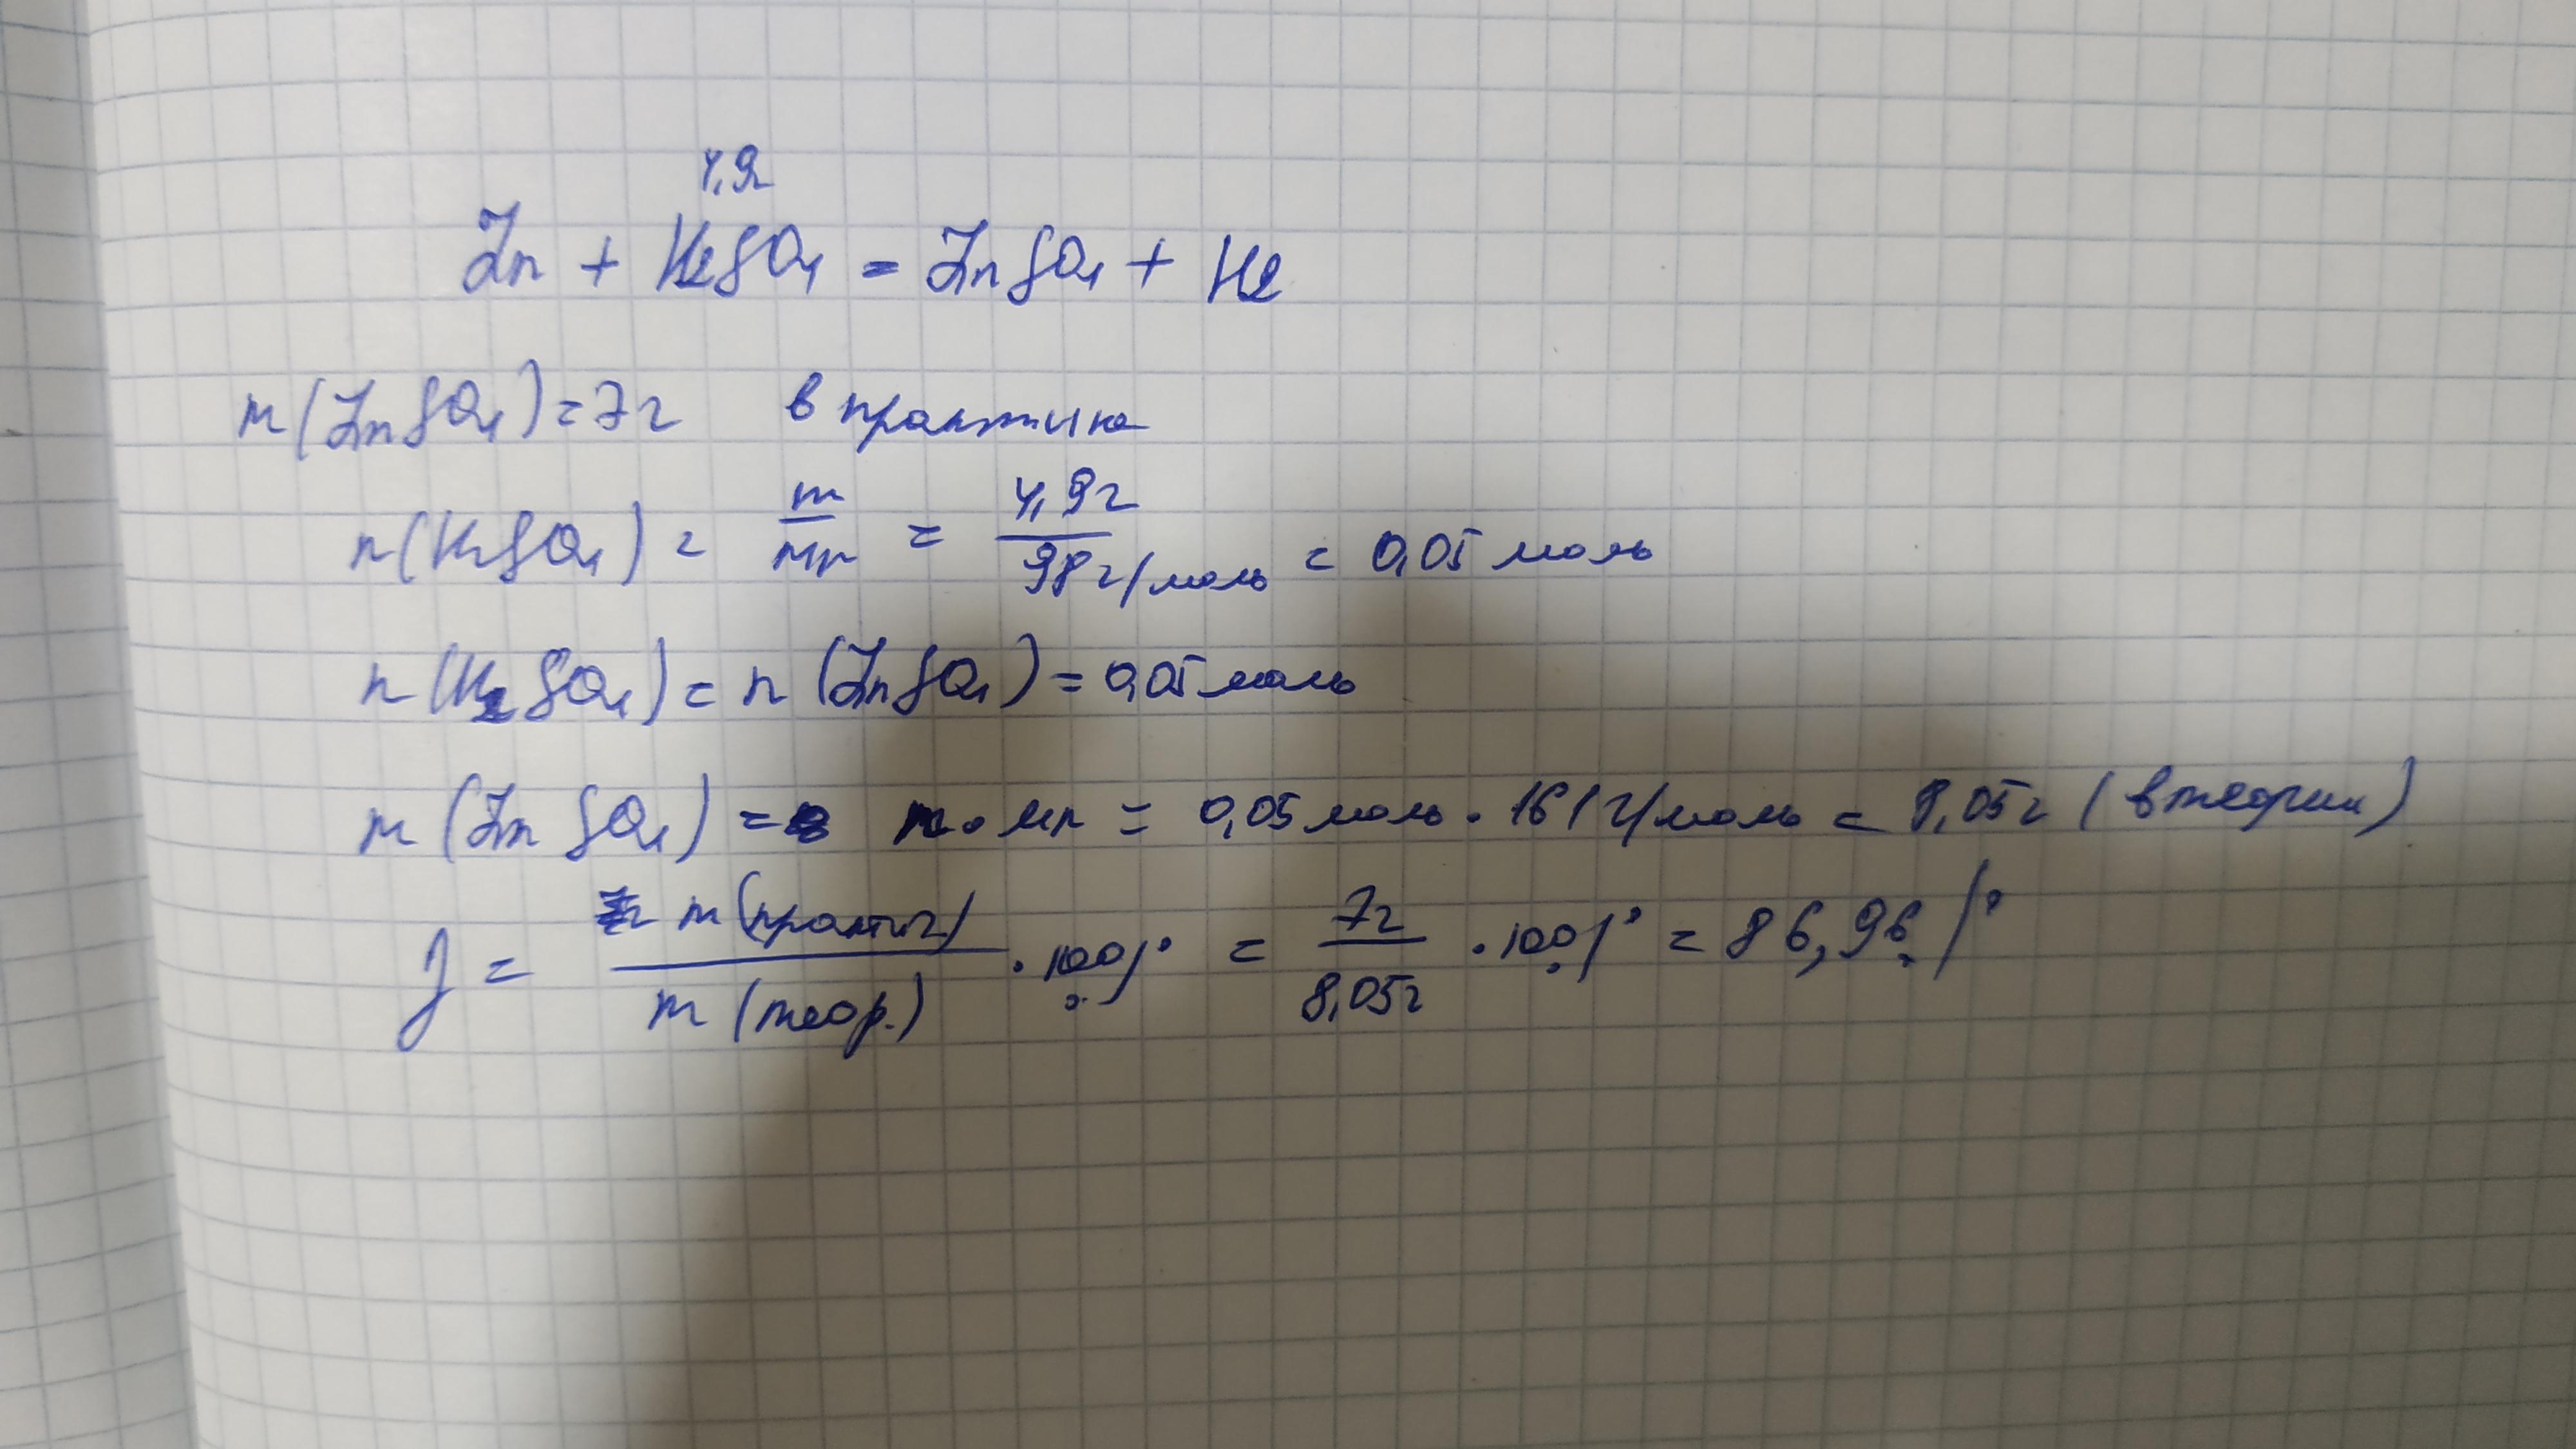 4,9г
Zn + H₂SO₄ = ZnSO₄ + H₂
m(ZnSO₄) = 7г в практике
n(H₂SO₄) = m/Mr = 4,9г/98г/моль = 0,05 моль
n(H₂SO₄) = n(ZnSO₄) = 0,05 моль
m(ZnSO₄) = n · Mr = 0,05 моль · 161 г/моль = 8,05г (в теории)
η = m(практич)/m(теор.) · 100% = 7г/8,05г · 100% = 86,96%